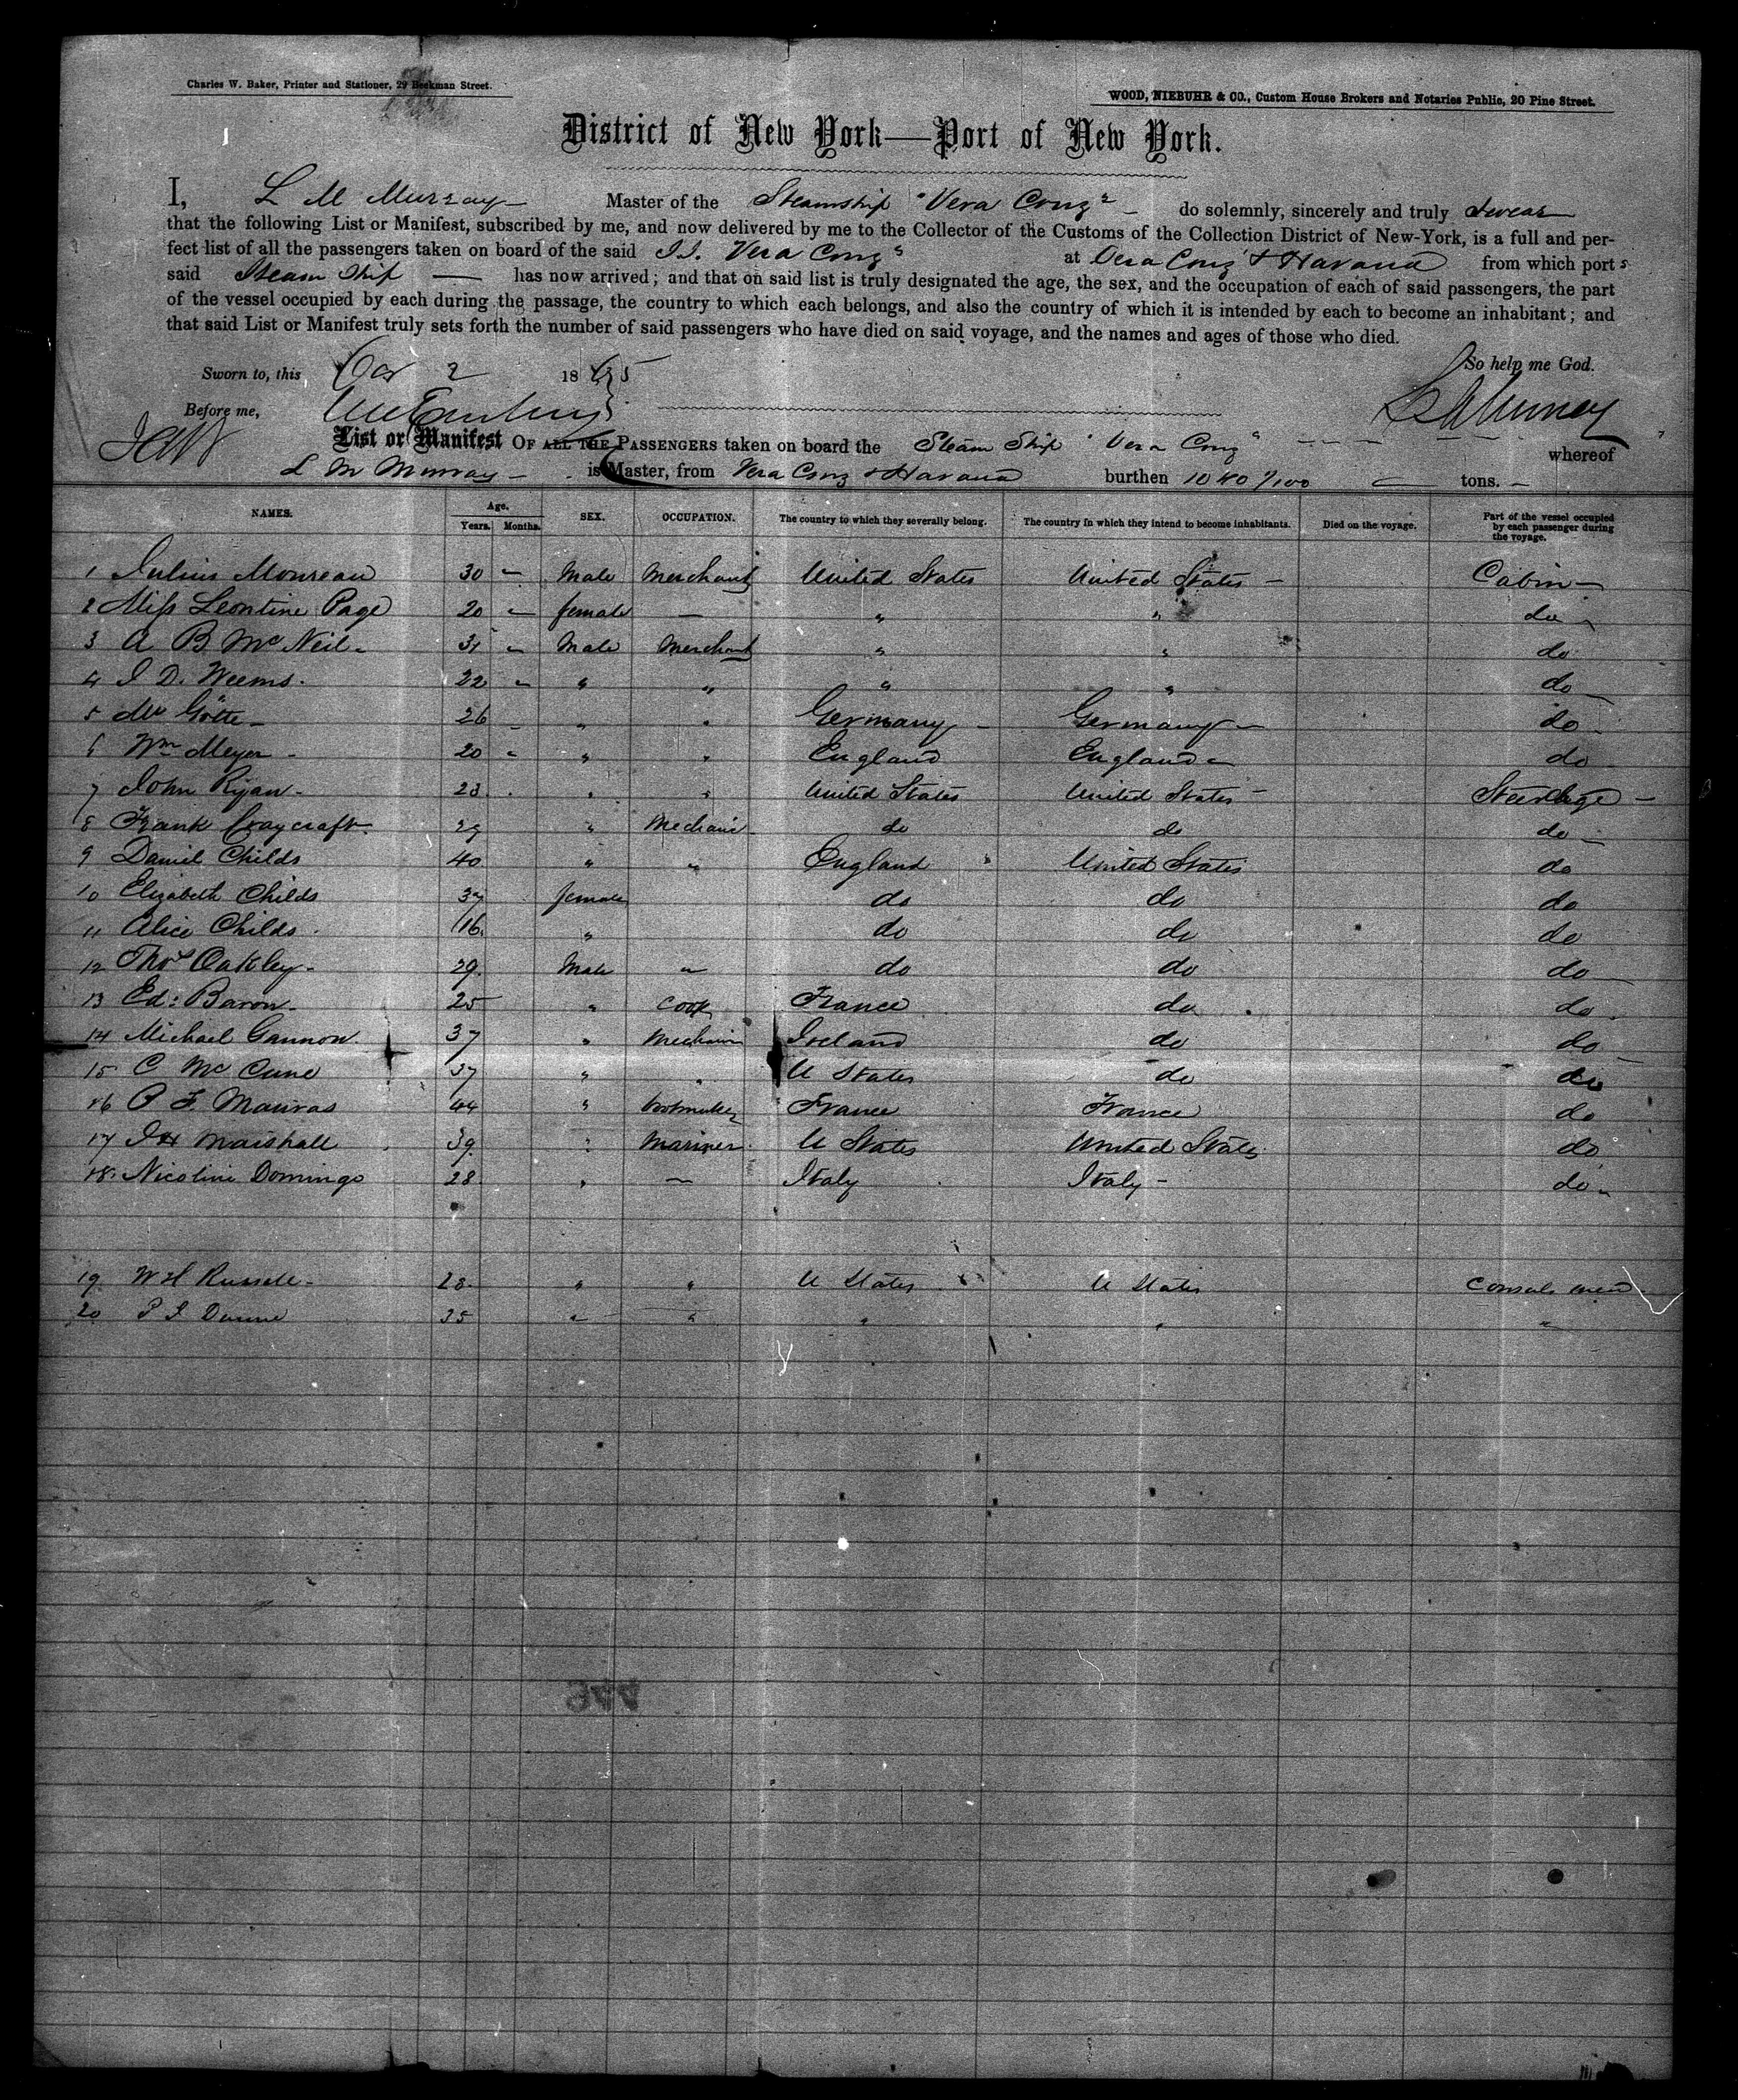 Charles W. Baker, Printer and Stationer, 29 Beekman Street.
WOOD, NIEBUHR & CO., Custom House Brokers and Notaries Public, 20 Pine Street.
District of New York—Port of New York.
I, L M Murray Master of the Steamship "Vera Cruz" do solemnly, sincerely and truly swear
that the following List or Manifest, subscribed by me, and now delivered by me to the Collector of the Customs of the Collection District of New-York, is a full and per-
fect list of all the passengers taken on board of the said S.S. Vera Cruz" at Vera Cruz & Havana from which ports
said Steam Ship has now arrived; and that on said list is truly designated the age, the sex, and the occupation of each of said passengers, the part
of the vessel occupied by each during the passage, the country to which each belongs, and also the country of which it is intended by each to become an inhabitant; and
that said List or Manifest truly sets forth the number of said passengers who have died on said voyage, and the names and ages of those who died.
So help me God.
Sworn to, this 2 18
Before me,
List or Manifest OF ALL THE PASSENGERS taken on board the Steam Ship "Vera Cruz" whereof
L M Murray is Master, from Vera Cruz & Havana burthen tons.
NAMES. Age. Years. Months. SEX. OCCUPATION. The country to which they severally belong. The country in which they intend to become inhabitants. Died on the voyage. Part of the vessel occupied by each passenger during the voyage.
1 Julius Moureau 30 - Male Merchant United States United States - Cabin -
2 Miss Leontine Page 20 - female - " " do
3 A B McNeil 31 - Male Merchant " " do
4 J D. Weems. 22 - " " " " do
5 Mr Götte 26 - " " Germany Germany do
6 Wm Meyer 20 - " " England England do
7 John Ryan 23 " " United States United States Steerage
8 Frank Craycraft 29 " Mechanic do do do
9 Daniel Childs 40 " " England United States do
10 Elizabeth Childs 37 female do do do
11 Alice Childs 16 " do do do
12 Thos Oakley 29 Male " do do do
13 Ed: Baron 25 " Cook France do do
14 Michael Gannon 37 " Mechanic Ireland do do
15 C McCune 37 " " U States do do
16 P F. Mauras 44 " Bootmaker France France do
17 J H Marshall 39 " Mariner U States United States do
18 Nicolini Domingo 28 " - Italy Italy - do
19 W H Russell 28 " " U States U States Consuls men
20 P J Dunne 35 " " " " "